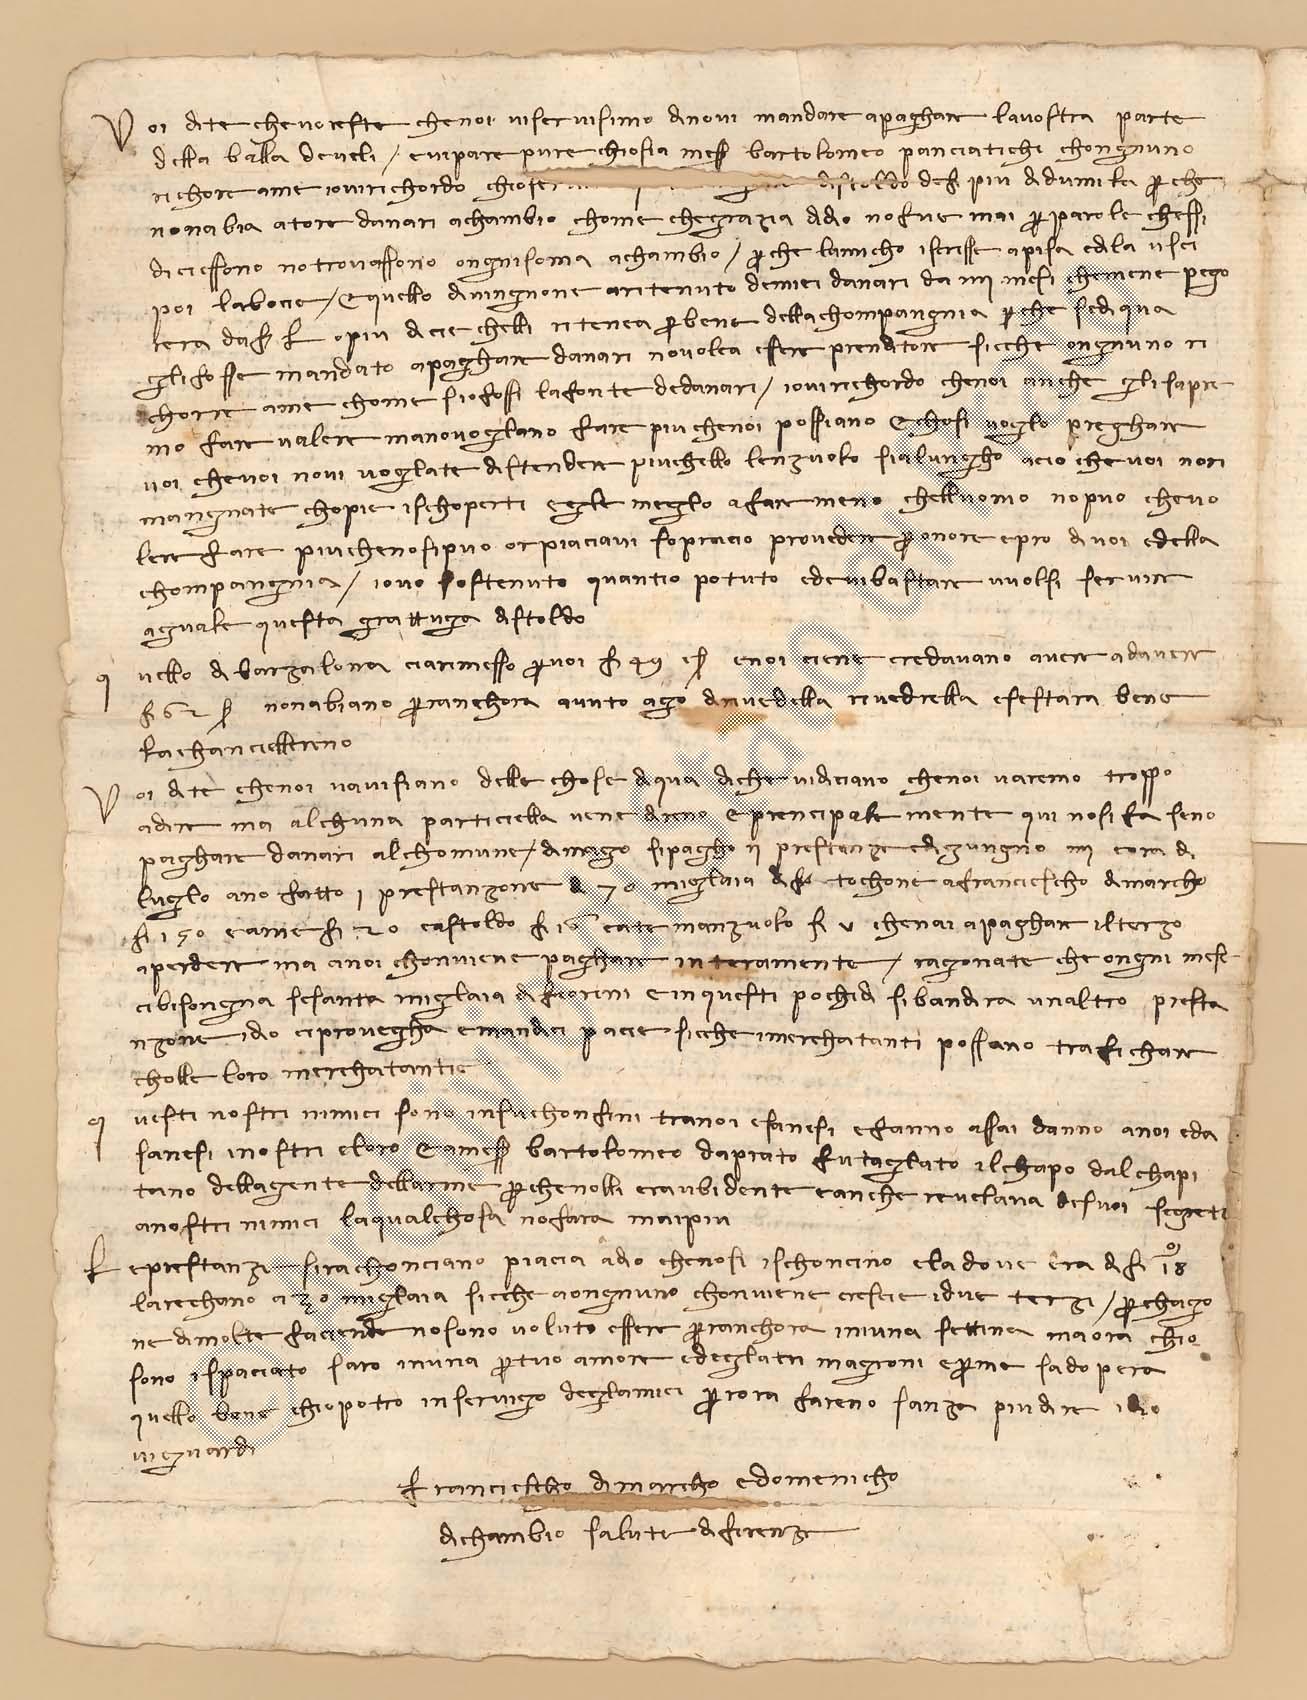 Voi dite che voreste che noi vi servisimo di novi mandare a paghare la vostra parte
della balla de veli / e vi pare pure ch'io sia meser bartolomeo panciatichi ch'ongnuno
richore a me io vi richordo ch'io
non abia a tore danari a chambio chome che grazia d'dio no fue mai per parole che ssi
diciessono no trovassono ongni soma a chambio / perche l'amicho iscrisse a pisa ed la usci
poi la bocie / e quello di vingnone a ritenuto de miei danari da iiii mesi che mene pego
rera da f. L o piu dicie ch'elli ritenea per bene della chompangnia perche se di qua
gli fosse mandato a paghare danari no volea essere prenditore sicche ongnuno ri
chorre a me chome s'io fossi la fonte de danari / io vi richordo che noi anche gli sapre
mo fare valere ma no voglano fare piu che noi possiano e chosi voglo preghare
voi che voi no vi voglate distendere piu che llo lenzuolo sia lungho acio che voi non
mangnate chopie ischoperti egl'e meglo a fare meno che ll'uomo no puo che vo
lere fare piu che no si puo or piaciavi sopracio provedere per onore e pro di voi e della
chompangnia / io v'o sostenuto quant'io potuto e devi bastare vuolsi servire
aguale questa grattuga distoldo
quello di barzalona ci a rimesso per voi f. 49 s. e noi ciene credavano avere ad avere
f. 62 s. non abiano per anchora auuto agio di rivedella rivedrella e se stara bene
la chanciellereno
Voi dite che noi v'avisiano delle chose di qua di che vi diciano che noi varemo troppo
a dire ma alchuna particiella vene direno e prencipale mente qui no si fa se no
paghare danari al chomune / di magio si pagho ii prestanze e di giungno iiii e ora di
luglo ano fatto i prestanzone di 70 miglaia di f. tochone a franciescho di marcho
f. 150 e a me f. 20 e a stoldo f. 16 e a te manzuolo f. v che n'ai a paghare il terzo
a perdere ma a noi chonviene paghare interamente / ragionate che ongni mese
ci bisongna sesanta miglaia di fiorini e in questi pochi di si bandira un altro presta
nzone idio ci provegha e mandici pacie sicche i merchatanti possano trafichare
cholle loro merchatantie
questi nostri nimici sono in su chonfini tra noi e sanesi e fanno assai danno a noi e da
sanesi i nostri e loro e a meser bartolomeo da prato fu taglato il chapo dal chapi
tano della giente dell'arme perche nolli era ubidente e anche rivelava de suoi segreti
a nostri nimici la qual chosa no fara mai piu
Le prestanze si rachonciano piacia a dio che no si ischoncino e la dove era di f. 18
la rechano a 30 miglaia sicche a ongnuno chonviene crescie i due terzi / per chagio
ne di molte faciende no sono voluto essere per anchora in niuna settina ma ora ch'io
sono ispaciato saro in una per tuo amore e degl'atri magioni e per me s'adopera
quello bene ch'io potro in servigio degl'amici per ora fareno sanza piu dire idio
vi guardi
franciescho di marcho e domenicho
di chambio salute di firenze